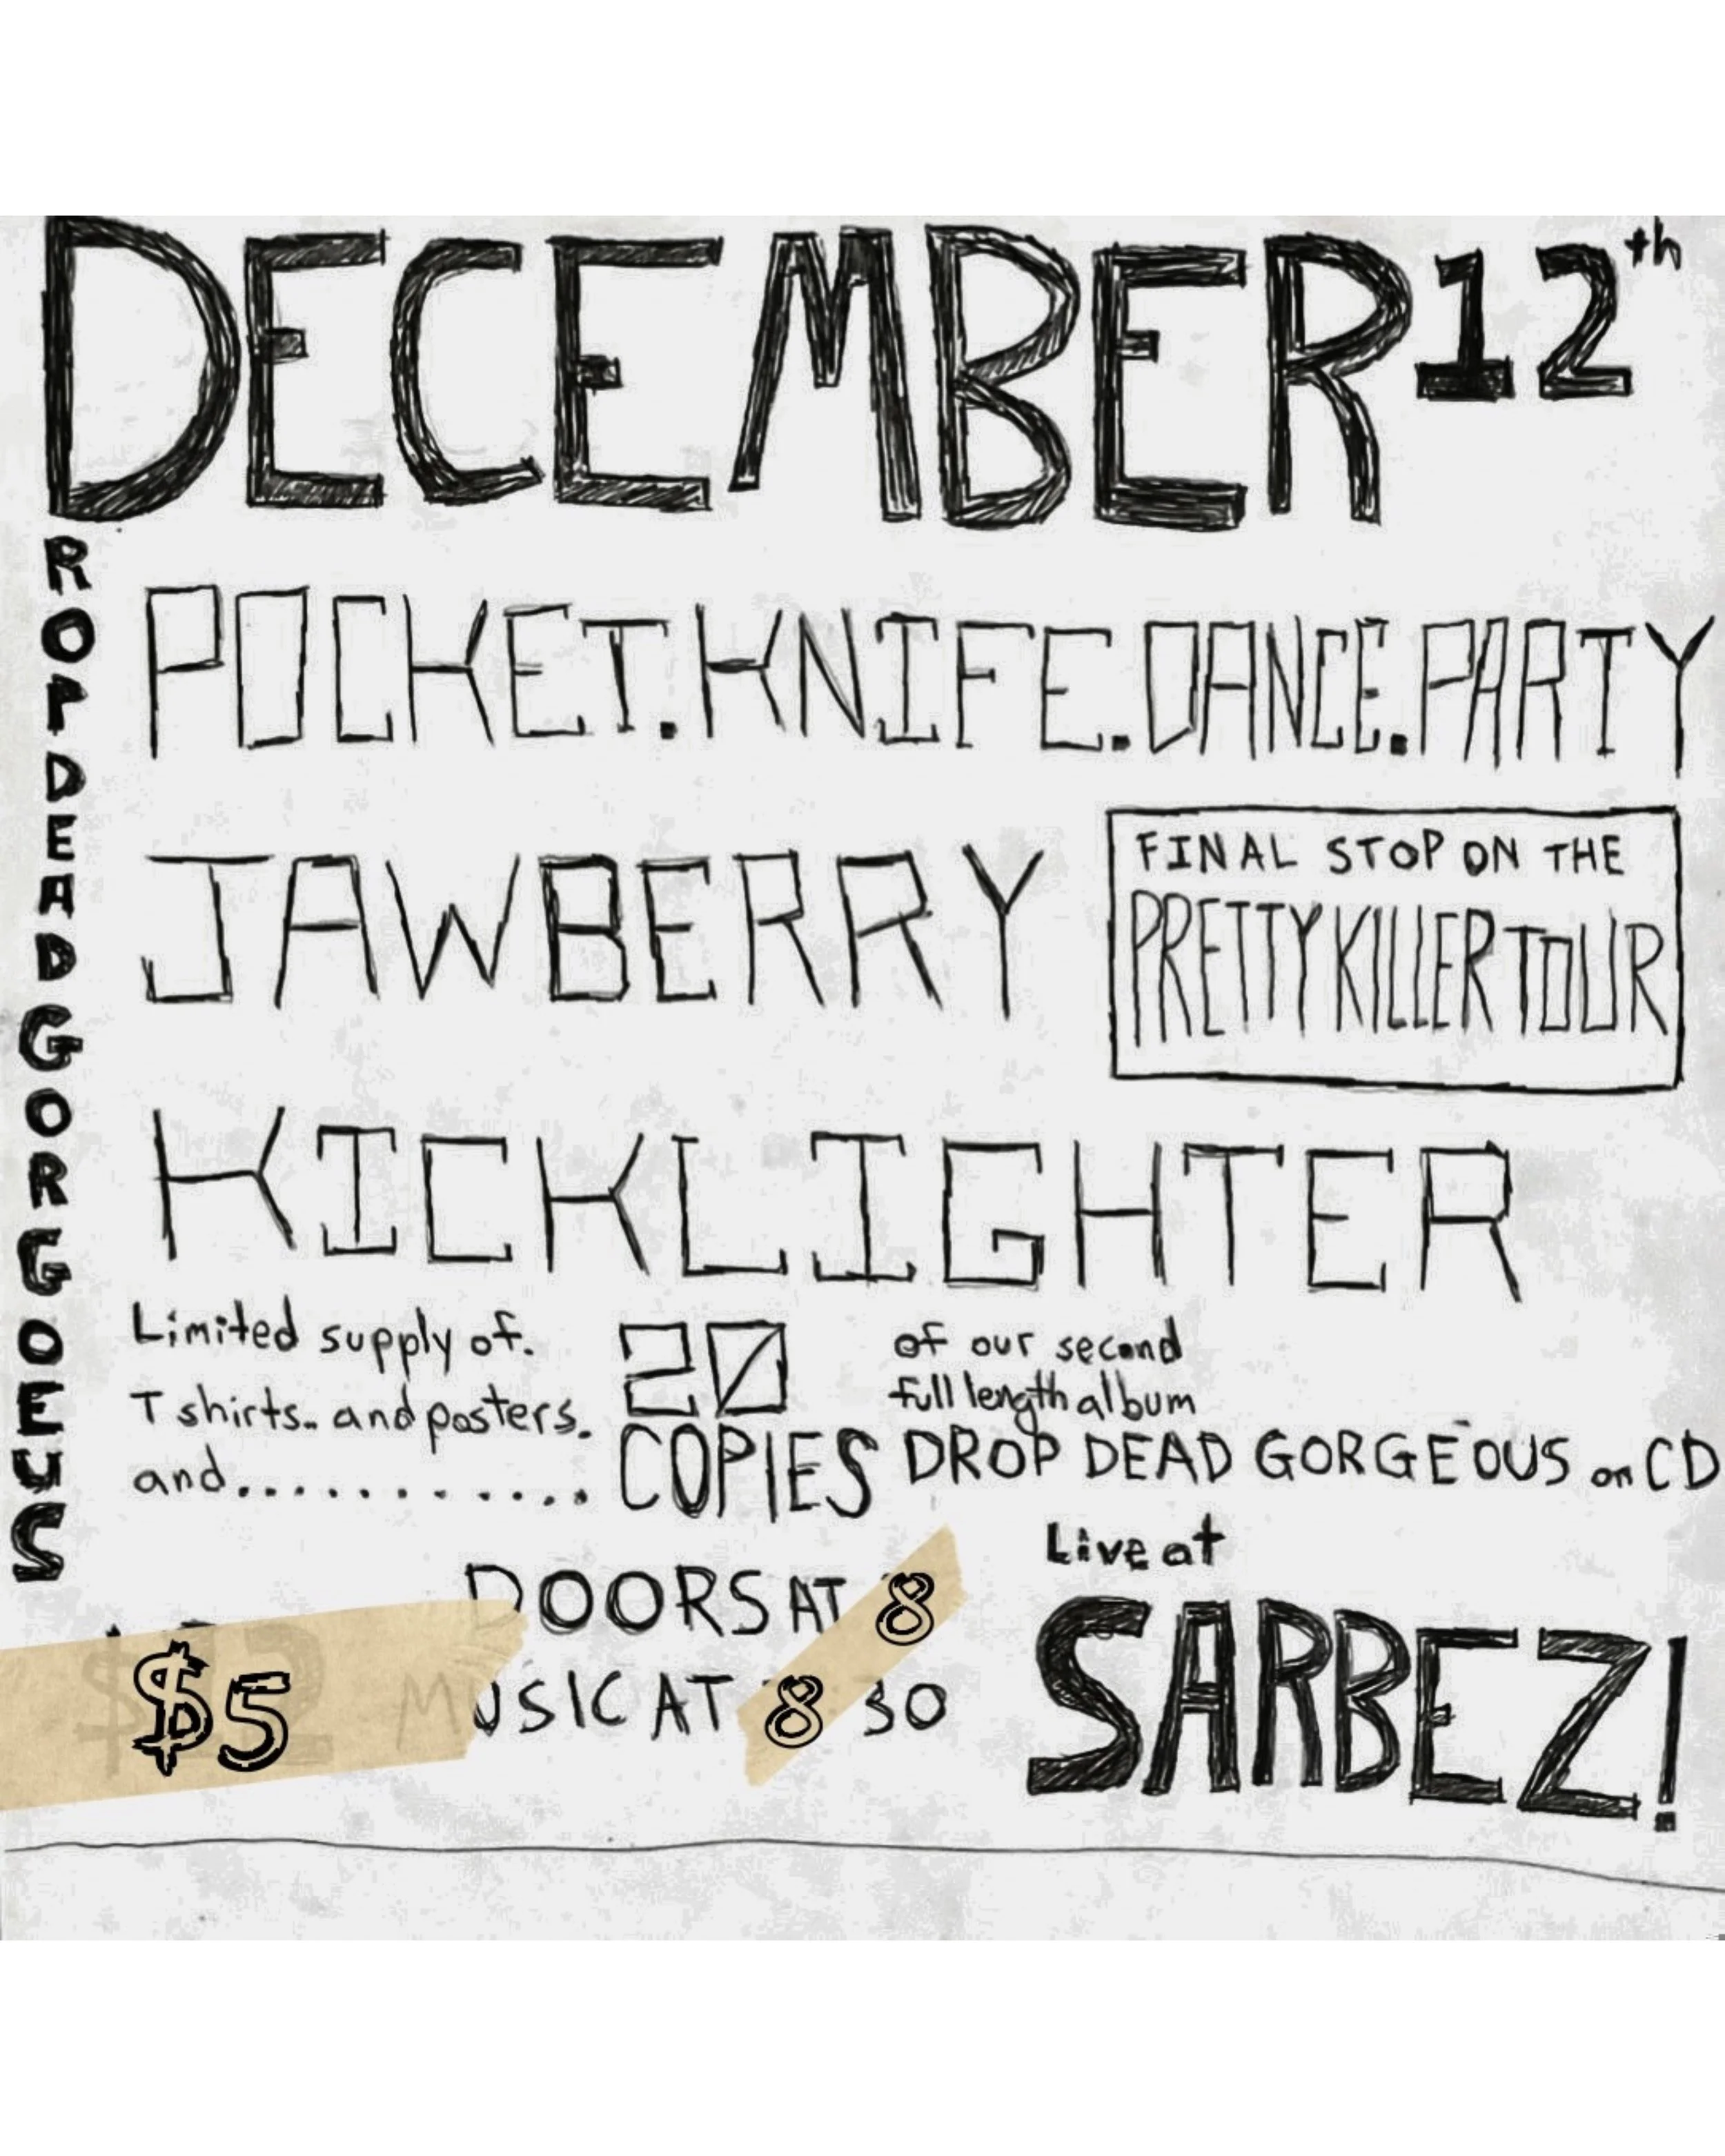 DECEMBER 12th
ROPDEADGORGOEUS
POCKET.KNIFE.DANCE.PARTY
JAWBERRY
FINAL STOP ON THE
PRETTY KILLER TOUR
KICKLIGHTER
Limited supply of.
T shirts.. and posters.
and............
20
COPIES
of our second
full length album
DROP DEAD GORGEOUS on CD
DOORS AT 8
MUSIC AT 8 30
$5
Live at
SARBEZ!